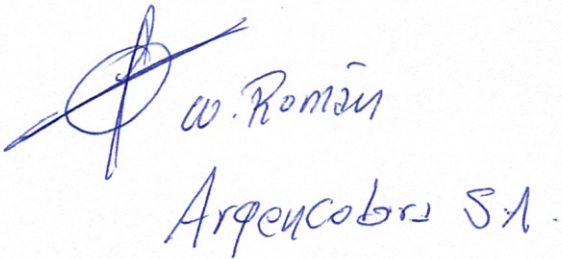 W. Román
Argencobra S.A.